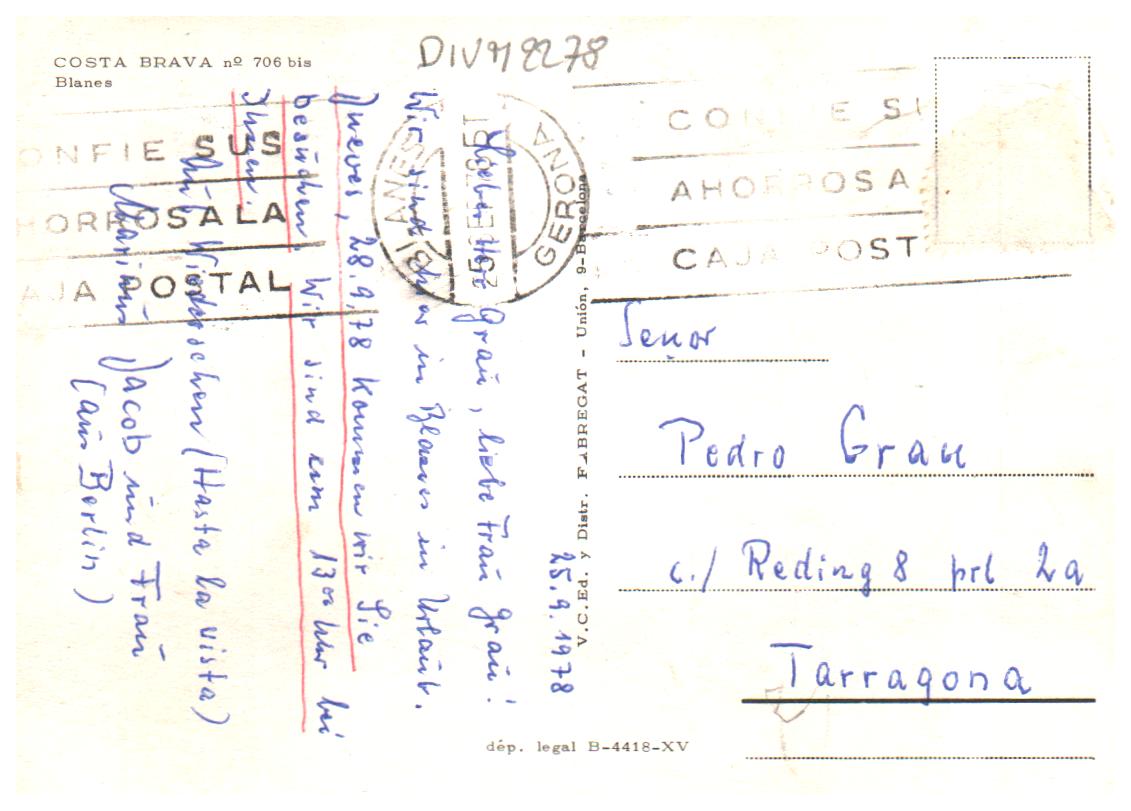 COSTA BRAVA nº 706 bis
Blanes
DIV M 2278
CONFIE SUS
AHORROS A LA
CAJA POSTAL
BLANES
25 SET
GERONA
CONFIE SU
AHORROS A
CAJA POST
25.9.1978
Lieber Herr Grau, liebe Frau Grau!
Wir sind in Blanes in Urlaub.
Jueves, 28.9.78 kommen wir Sie
besuchen. Wir sind um 13oo Uhr bei
Ihnen.
Auf Wiedersehen (Hasta la vista)
Jacob und Frau
(aus Berlin)
V.C. Ed. y Distr. FABREGAT - Unión, 9-Barcelona
Señor
Pedro Grau
c./ Reding 8 prl 2a
Tarragona
dép. legal B-4418-XV